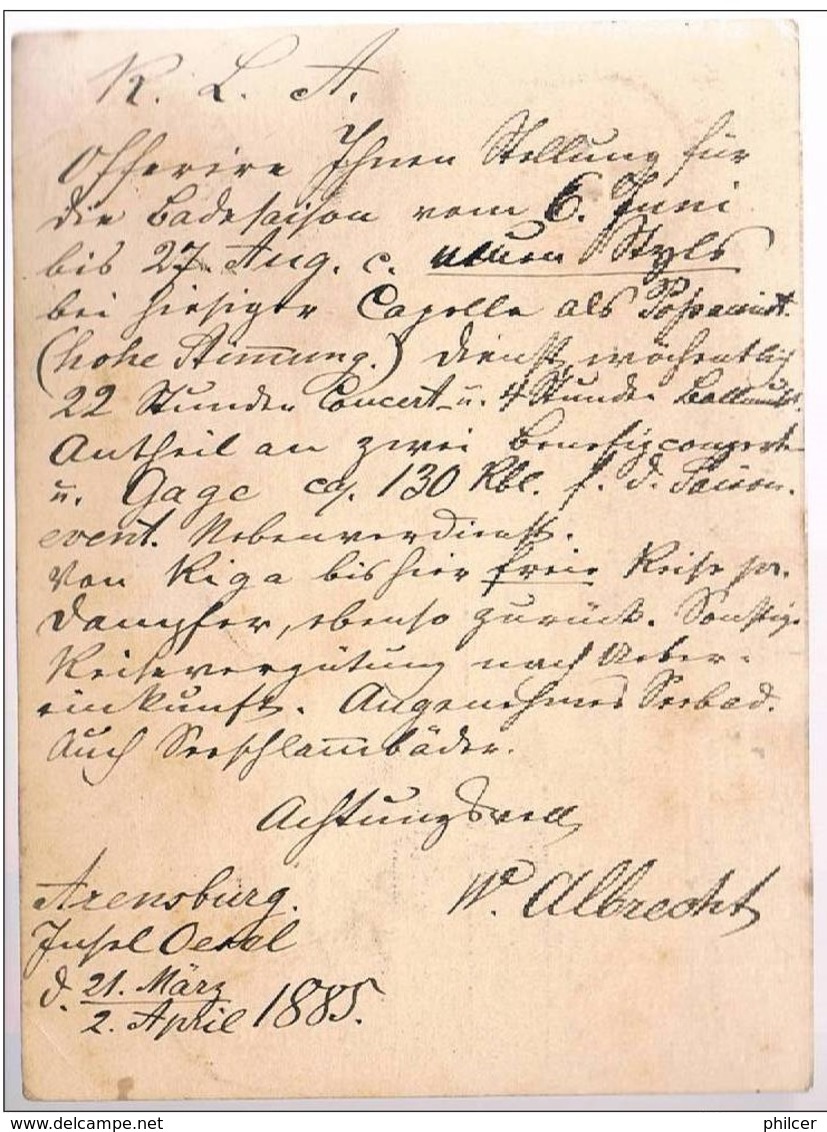 K. L. A.
Offerire Ihnen Stellung für
die Badesaison vom 6. Juni
bis 27. Aug. c. neuen Styls
bei hiesiger Capelle als
(hohe Stimmung.) Dienst wöchentlich
22 Stunden Concert u. 4 Stunden
Antheil an zwei Benefizconzerten
u. Gage ca. 130 Rbl. f. d. Saison.
event. Nebenverdienst.
Von Riga bis hier freie Reise pr.
Dampfer, ebenso zurück. Sonstige
Reisevergütung nach Ueber-
einkunft. Angenehmes Seebad.
Auch Seeschlammbäder.
Achtungsvoll
W. Albrecht
Arensburg.
Insel Oesel
d. 21. März
2. April 1885.
www.delcampe.net
philcer